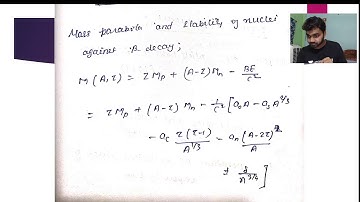 Mass parabola and stability of nuclei
against β decay;
M(A,Z) = Z Mp + (A-Z) Mn - BE/C²
= Z Mp + (A-Z) Mn - 1/C² [ a₀A - a₃ A^2/3
- ac Z(Z-1)/A^1/3 - an (A-2Z)²/A
± δ/A^3/4 ]